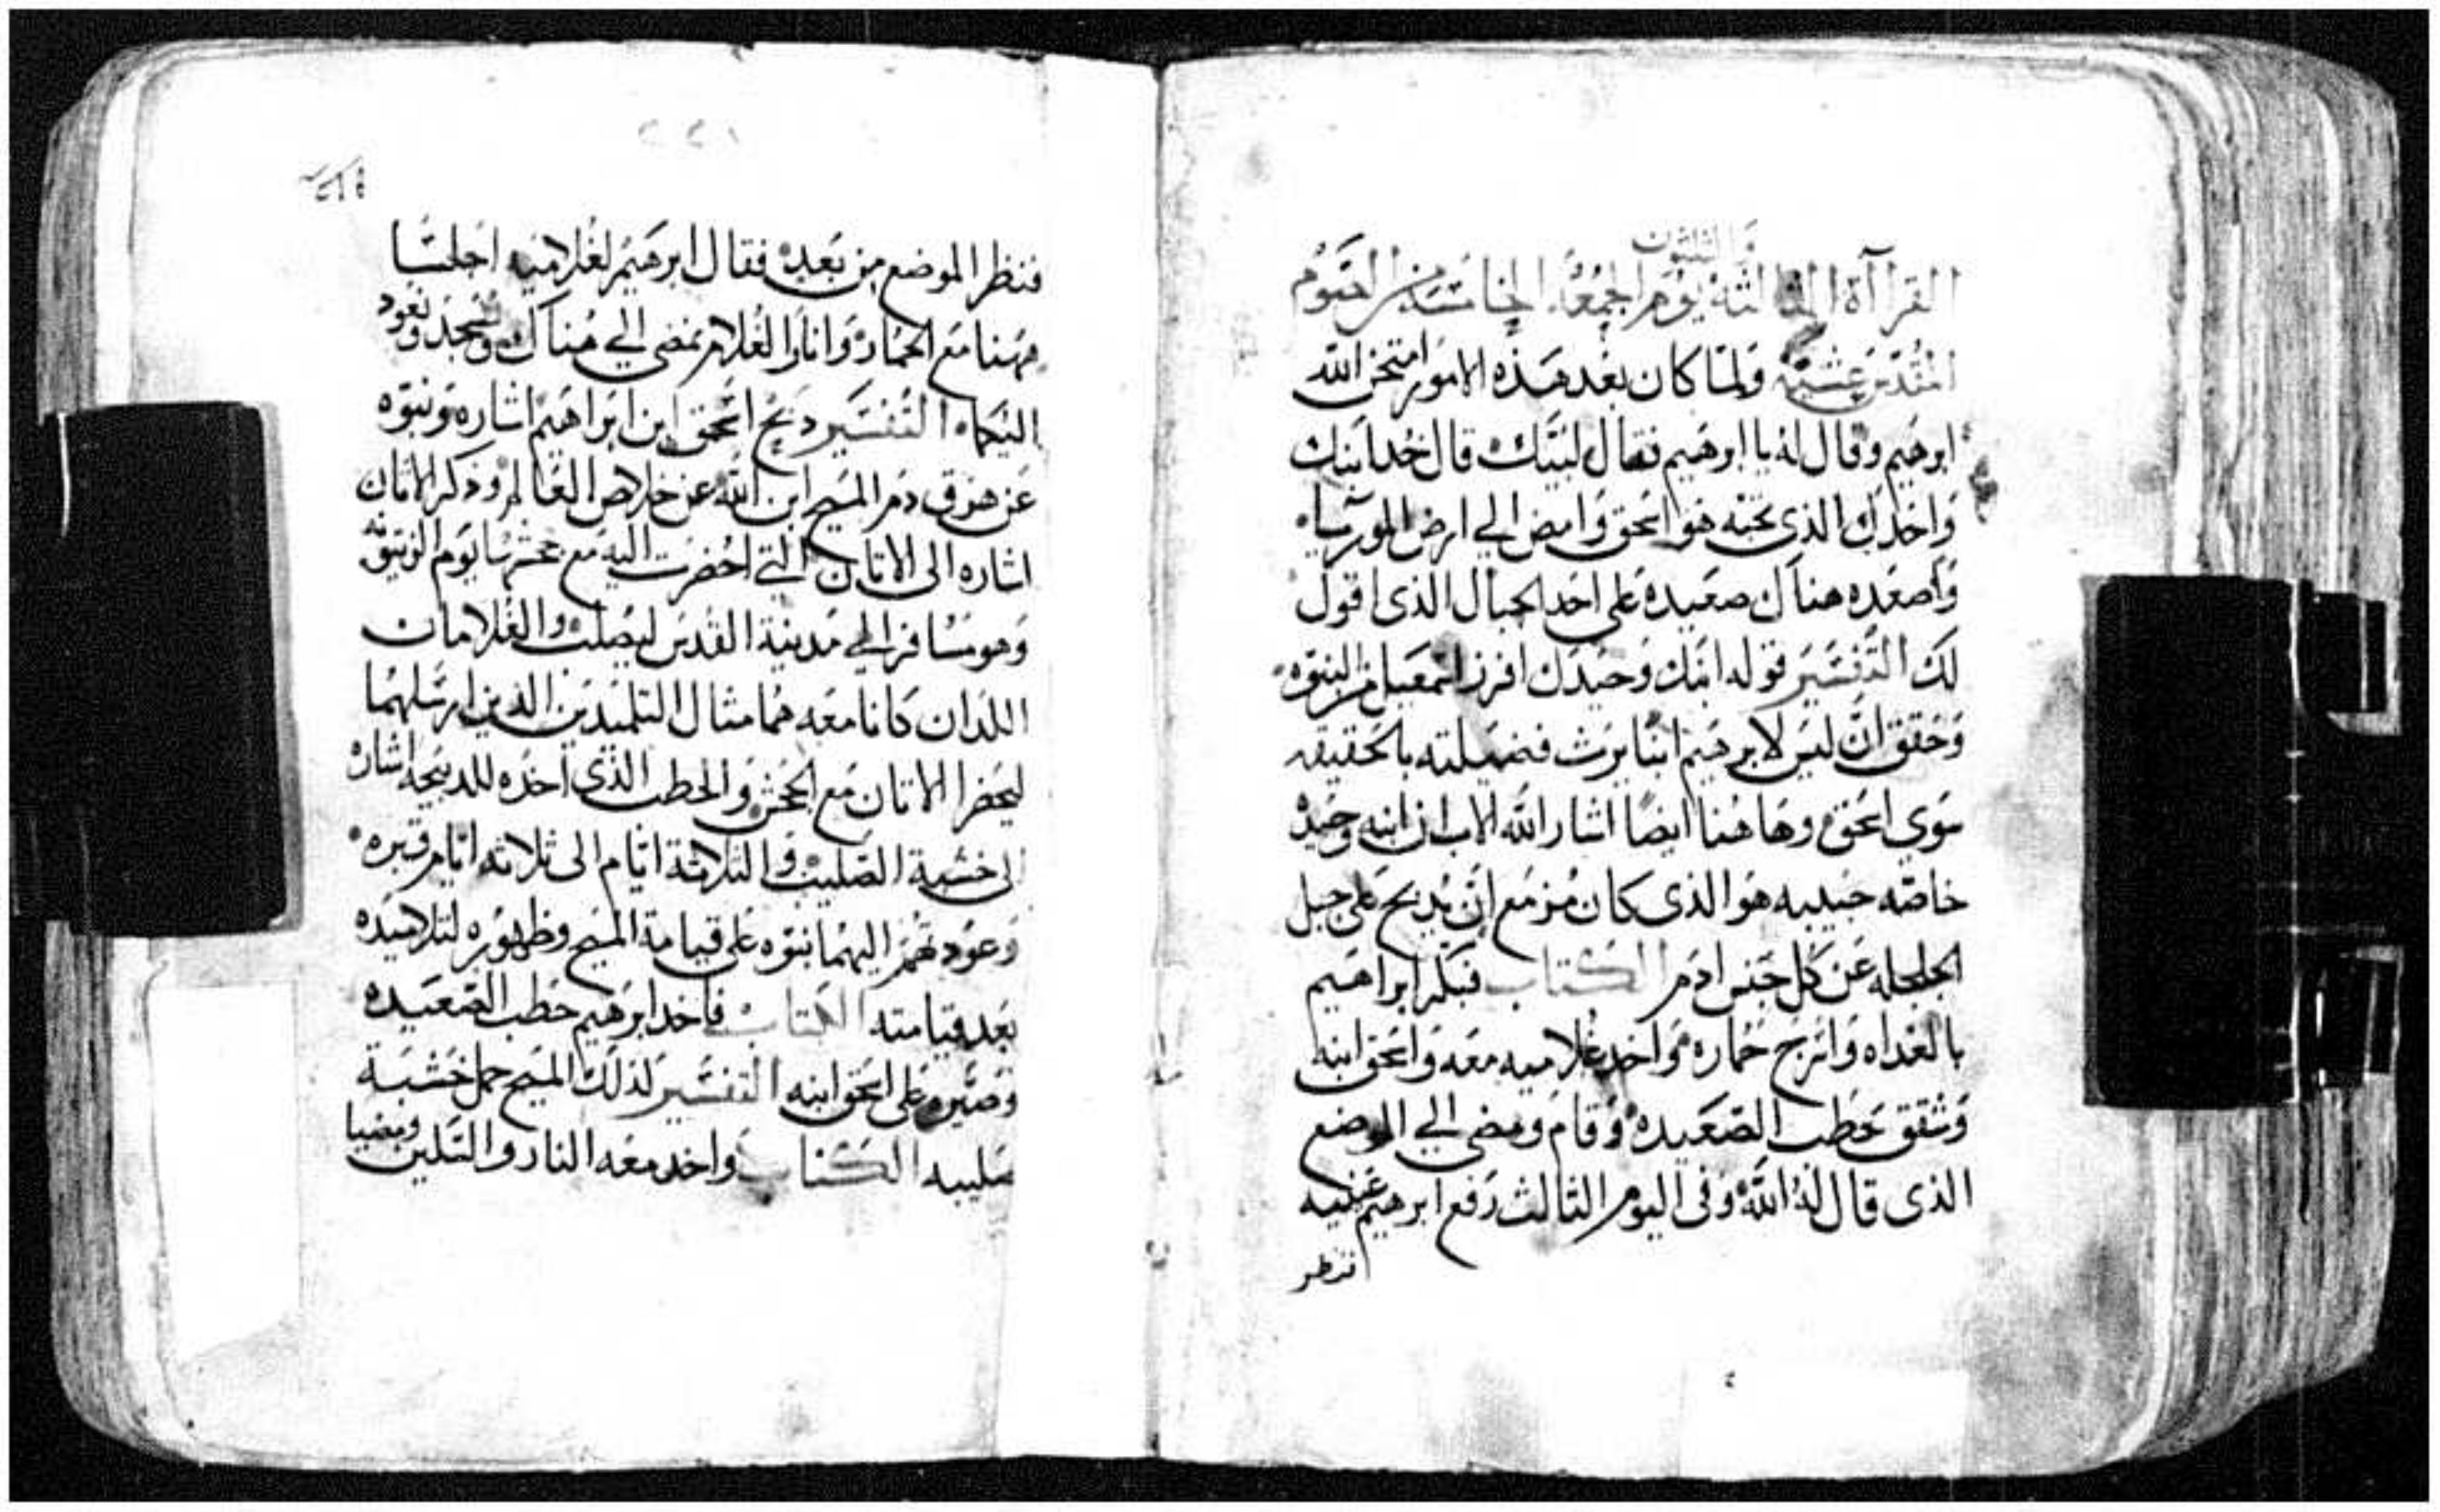 والثلثون
القرآآة الثالثة يوم الجمعة الخامسة من الصوم
المقدس عشية ولما كان بعد هذه الامور امتحن الله
ابرهيم وقال له يا ابرهيم فقال لبيك قال خد ابنك
واحدك الذى تحبه هو اسحق وامض الي ارض المورسيا
واصعده هناك صعيدة على احد الجبال الذى اقول
لك التفسير قوله ابنك وحيدك افرز اسمعيل من البنوه
وحقق ان ليس لابرهيم ابنا يرث فضيلته بالحقيقه
سوى اسحق وهاهنا ايضا اشار الله الاب ان ابنه وحيده
خاصه حبيبه هو الذى كان مزمع ان يدبح على جبل
الجلجله عن كل جنس ادم الكتاب فبكر ابراهيم
بالغداه واسرج حماره واخد غلاميه معه واسحق ابنه
وشقق حطب الصعيده وقام ومضى الي الموضع
الذى قال له الله وفى اليوم الثالث رفع ابرهيم عينيه
فنظر
٢٢١
فنظر الموضع من بعده فقال ابرهيم لغلاميه اجلسا
ههنا مع الحماره وانا والغلام نمضى الي هناك ونسجد ونعود
اليكما التفسير دبح اسحق ابن ابراهيم اشاره ونبوه
عن هرق دم المسيح ابن الله عن خلاص العالم ودكر الاتان
اشاره الى الاتان التي احضرت اليه مع جحشها يوم الزيتونه
وهو مسافر الي مدينة القدس ليصلب والغلامان
اللدان كانا معه هما مثال التلميدين الدين ارسلهما
ليحضرا الاتان مع الجحش والحطب الذى اخده للدبيحه اشاره
الى خشبة الصليب والثلاثة ايام الى ثلاثه ايام قبره
وعودتهم اليهما نبوه على قيامة المسيح وظهوره لتلاميده
بعد قيامته الكتاب فاخد ابرهيم حطب الصعيده
وصيره على اسحق ابنه التفسير لذلك المسيح حمل خشبة
صليبه الكتاب واخد معه النار والسكين ومضيا